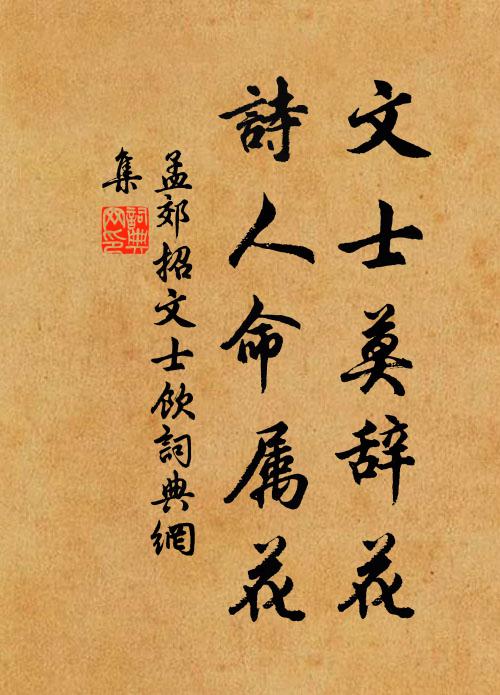 文士莫辞花
詩人命属花
孟郊招文士飲詞典網
集
詞典网印